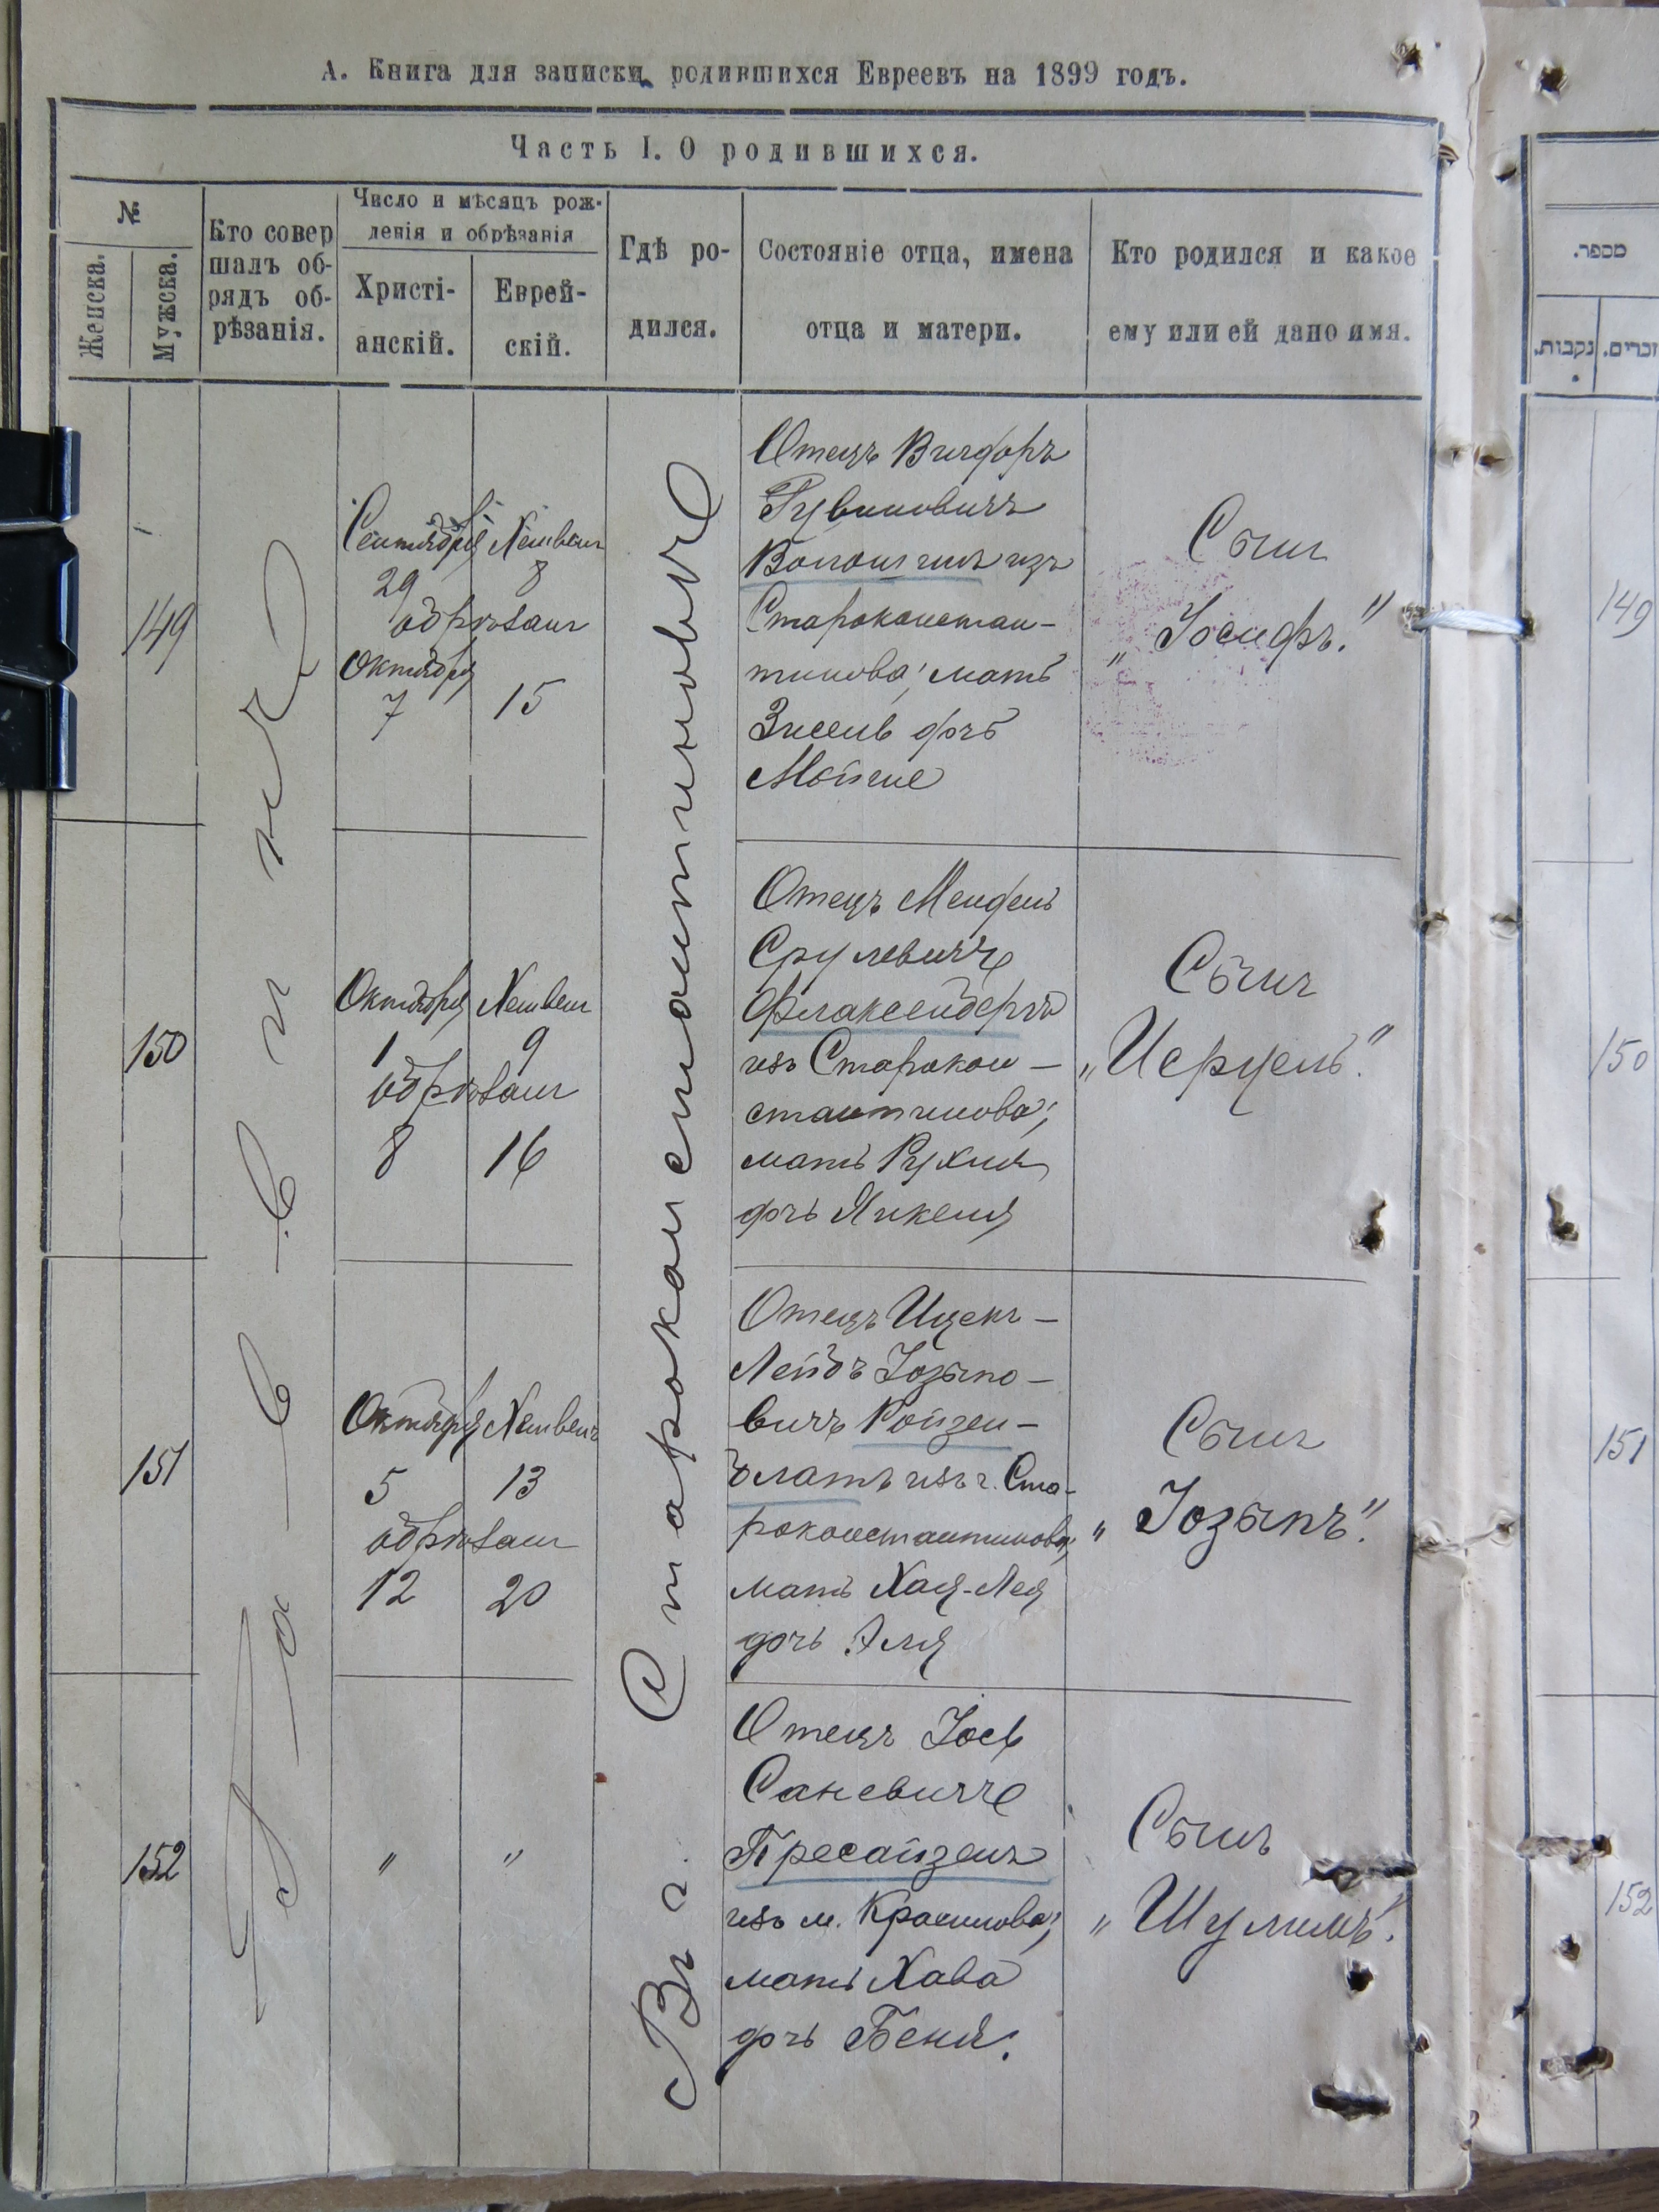 А. Книга для записки родившихся Евреевъ на 1899 годъ.
Часть I. О родившихся.
№
Женска.
Мужска.
Кто совер
шалъ об-
рядъ об-
рѣзанія.
Число и мѣсяцъ рож-
денія и обрѣзанія
Христі-
анскій.
Еврей-
скій.
Гдѣ ро-
дился.
Состояніе отца, имена
отца и матери.
Кто родился и какое
ему или ей дано имя.
149
Сентября
29
обрѣзанъ
Октября
7
8
15
Отецъ Вигдоръ
Рувиновичъ
Волошинъ изъ
Староконстан-
тинова; мать
Зисель дочь
Мойше
Сынъ
„Іосифъ."
150
Октября
1
обрѣзанъ
8
9
16
Отецъ Мендель
Срулевичъ
Флаксендеръ
изъ Старокон-
стантинова;
мать Рухля
дочь Янкеля
Сынъ
„Нерцель."
151
Октября
5
обрѣзанъ
12
13
20
Отецъ Ицекъ-
Лейбъ Іозыпо-
вичъ Ройзен-
блатъ изъ г. Ста-
роконстантинова,
мать Хая-Лея
дочь Эля
Сынъ
„Іозыпъ".
152
"
"
Отецъ Іось
Саневичъ
Пресайзенъ
изъ м. Красилова;
мать Хава
дочь Беня.
Сынъ
„Шулимъ".
Въ г. Староконстантиновѣ
מספר.
נקבות.
זכרים.
149
150
151
152